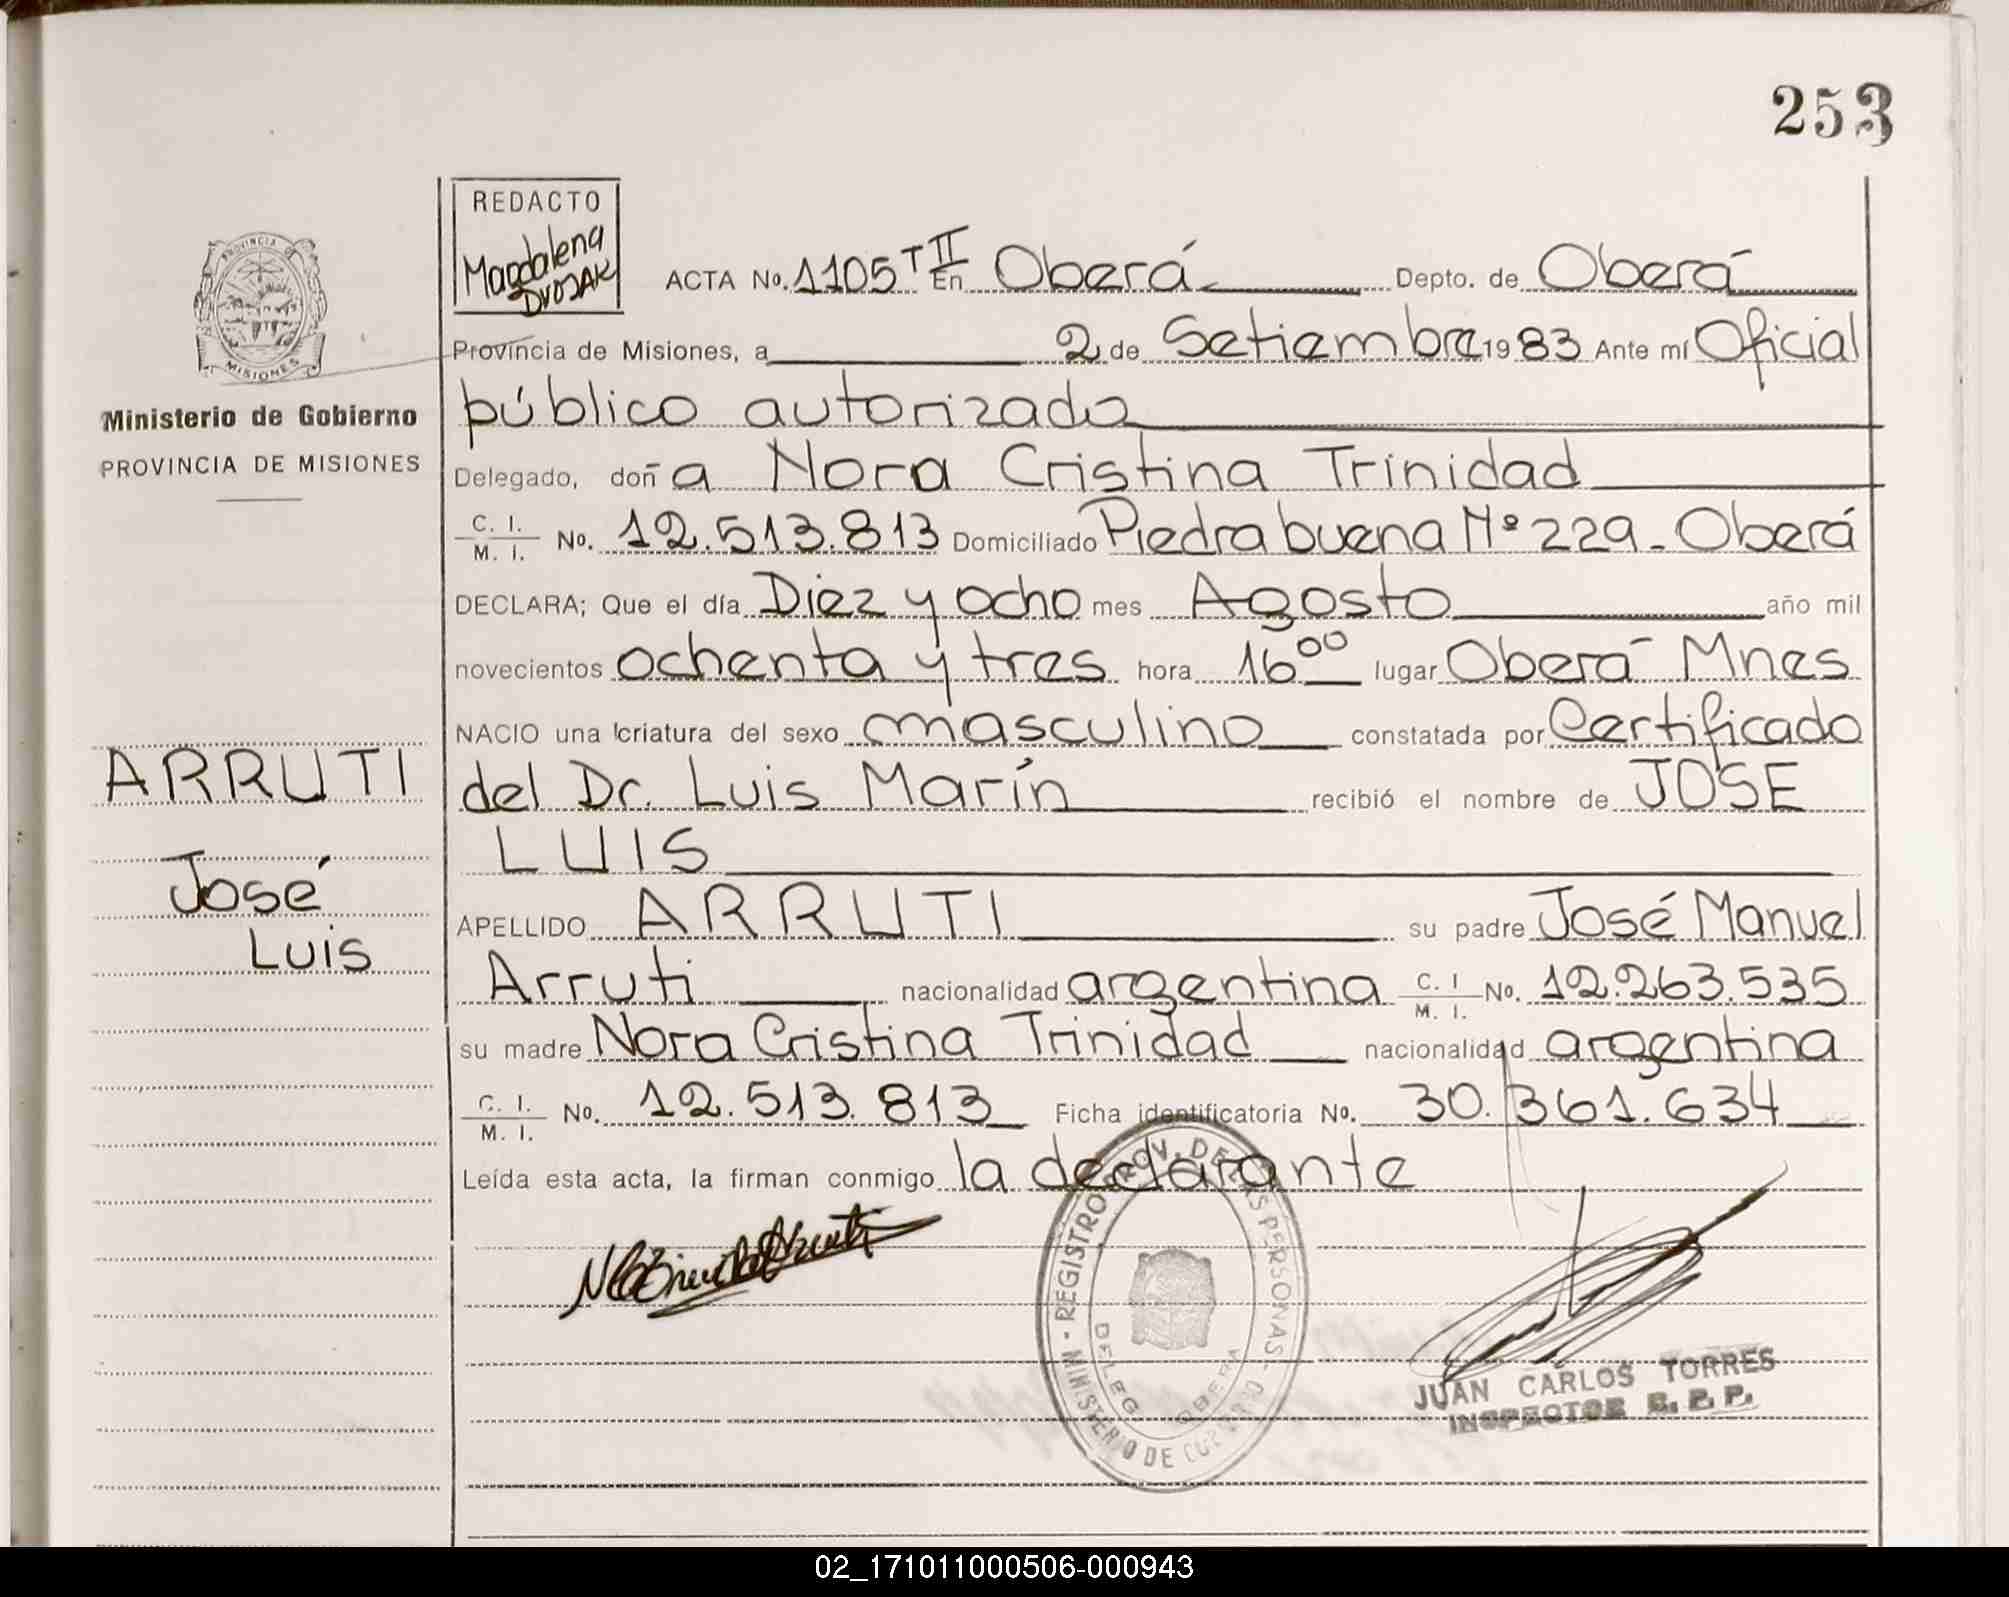 253
REDACTO
Magdalena
DVOJAK
ACTA No. 1105 T II En Oberá Depto. de Oberá
Provincia de Misiones, a 2 de Setiembre 1983 Ante mí Oficial
público autorizado
Delegado, doña Nora Cristina Trinidad
C. I. / M. I. No. 12.513.813 Domiciliado Piedrabuena Nº 229 - Oberá
DECLARA; Que el día Diez y ocho mes Agosto año mil
novecientos ochenta y tres hora 16 00 lugar Oberá Mnes
NACIO una criatura del sexo masculino constatada por Certificado
del Dr. Luis Marín recibió el nombre de JOSE
LUIS
APELLIDO ARRUTI su padre José Manuel
Arruti nacionalidad argentina C. I / M. I. No. 12.263.535
su madre Nora Cristina Trinidad nacionalidad argentina
C. I. / M. I. No. 12.513.813 Ficha identificatoria No. 30.361.634
Leída esta acta, la firman conmigo la declarante
PROVINCIA DE
MISIONES
Ministerio de Gobierno
PROVINCIA DE MISIONES
ARRUTI
José
Luis
REGISTRO PROV. DE LAS PERSONAS -
MINISTERIO DE GOBIERNO
DELEG. OBERA
JUAN CARLOS TORRES
INSPECTOR R. P. P.
02_171011000506-000943